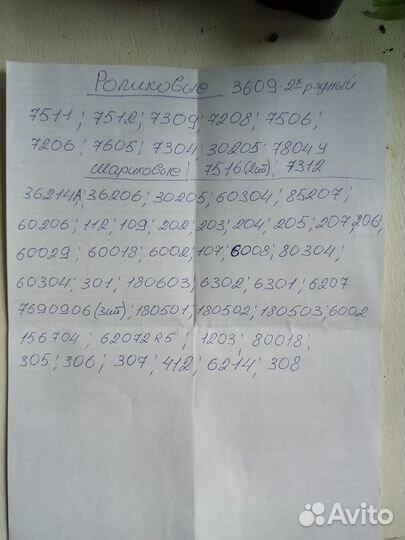 Роликовые 3609-2х рядный
7511; 7512; 7309; 7208; 7506;
7206; 7605; 7304; 30205; 7804У
Шариковые; 7516(2шт); 7312
36214А; 36206; 30205; 60304; 85207;
60206; 112; 109; 202; 203; 204; 205; 207; 206;
60029; 60018; 6002; 107; 6008; 80304;
60304; 301; 180603; 6302; 6301; 6207
7690906(3шт); 180501; 180502; 180503; 6002
156704; 62072RS; 1203; 80018;
305; 306; 307; 412; 6214; 308
Avito